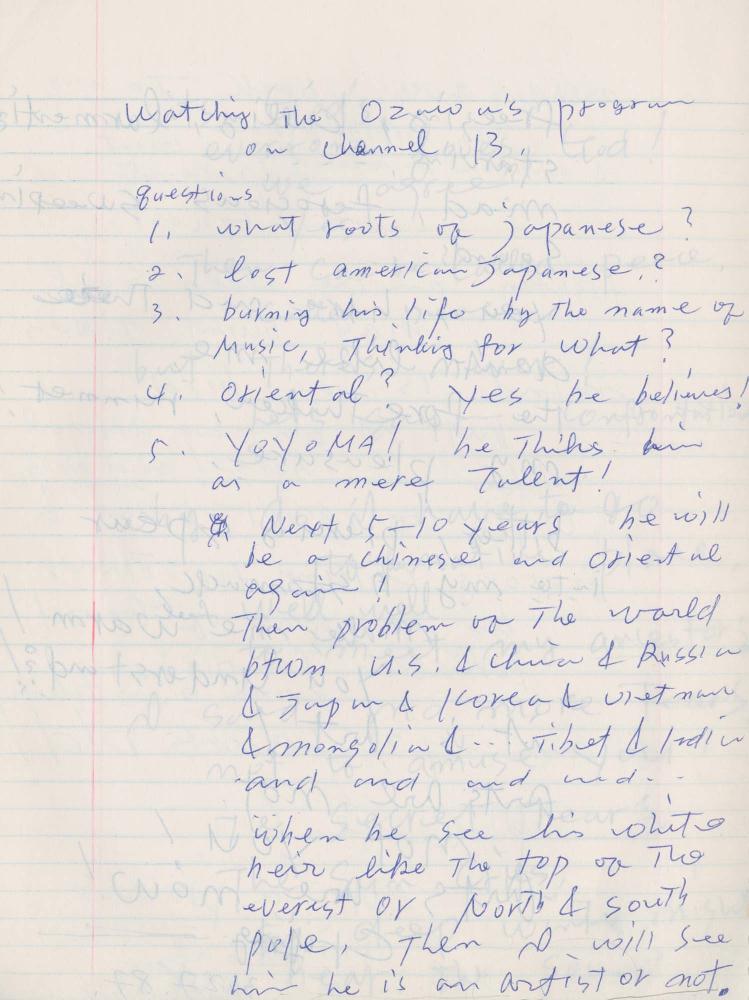 Watching The Ozawa's program
on channel 13.
questions
1. what roots of japanese?
2. lost american japanese.?
3. burning his life by the name of
Music, Thinking for what?
4. Oriental? Yes he believes!
5. YOYOMA! he Thinks him
as a mere Talent!
Next 5-10 years he will
be a chinese and oriental
again!
Then problem of The world
btwn U.S. & China & Russia
& Japan & Korea & vietnam
& mongolia & ... Tibet & India
and and and and..
when he see his white
heir like The top of The
everest or North & South
pole, Then I will see
him he is an artist or not.